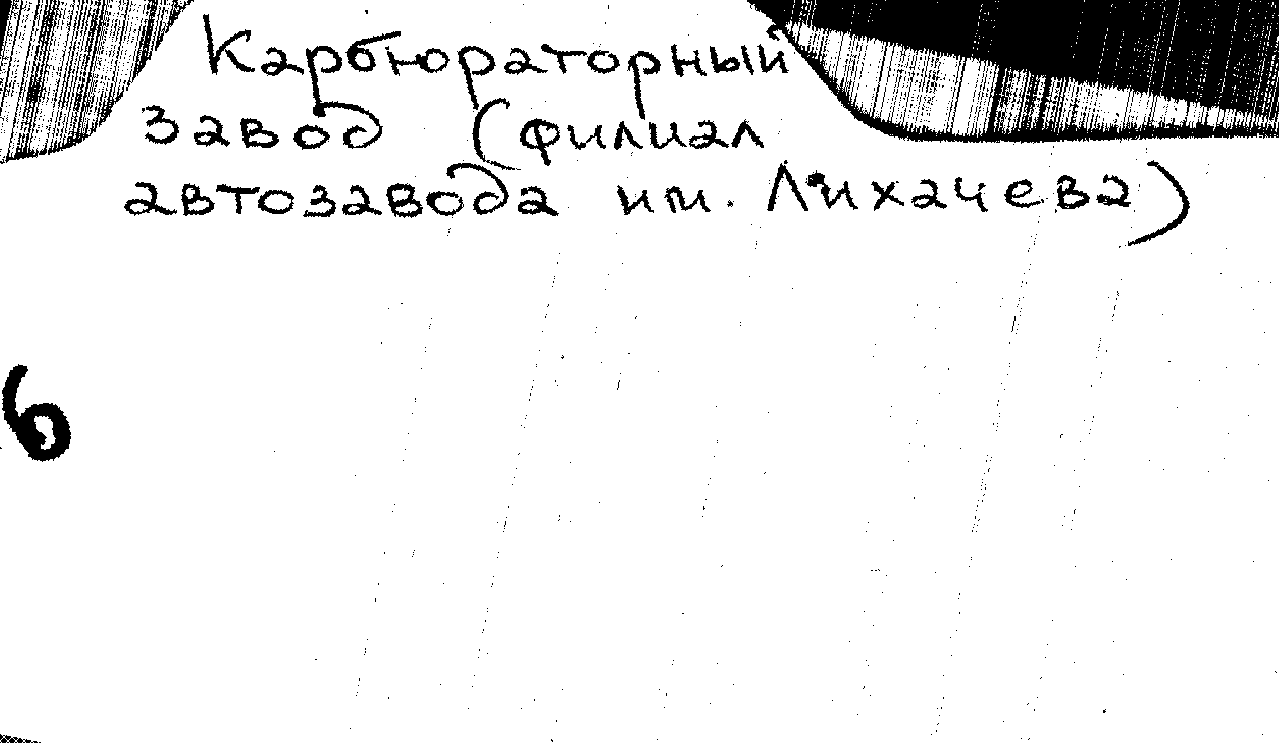 Карбюраторный
завод (филиал
автозавода им. Лихачева)
6